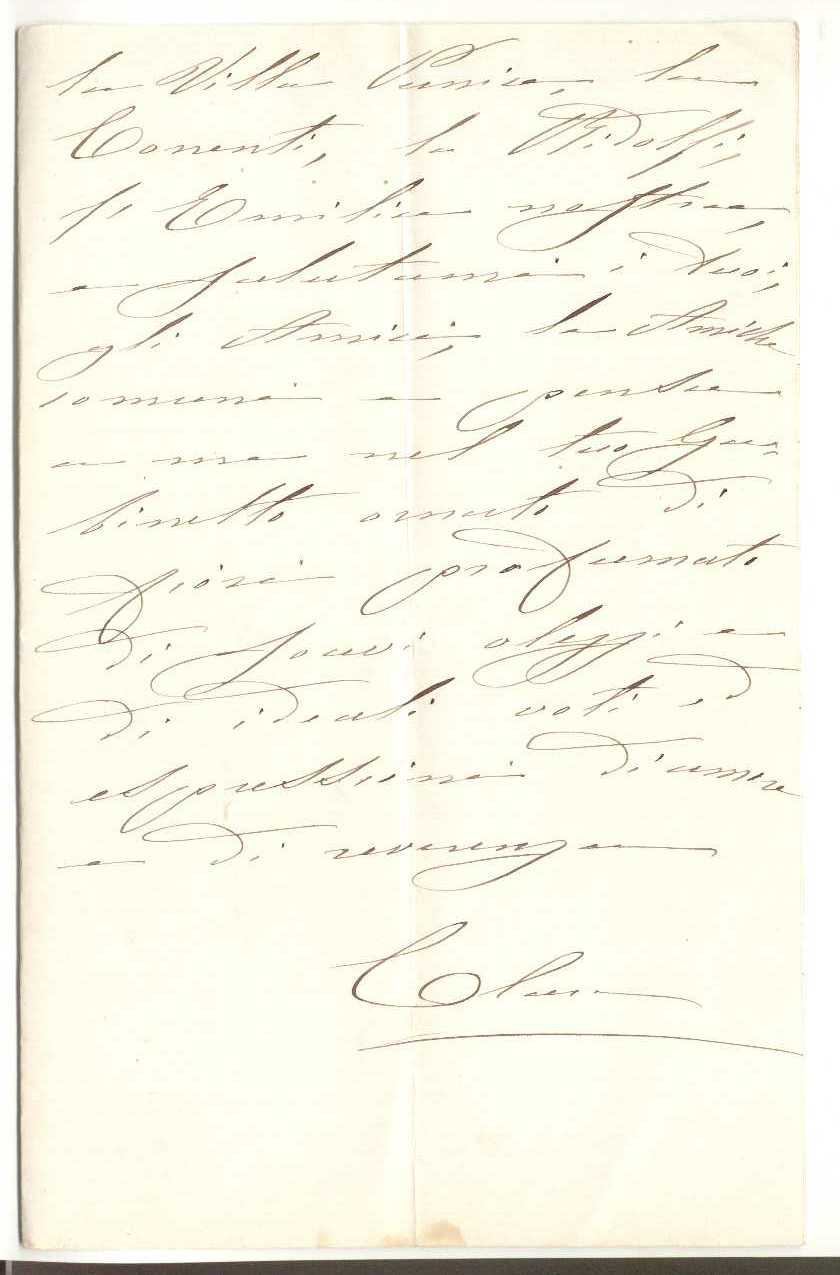 la Villa Pernice, la
Correnti, la Ridolfi,
l'Emilia nostra,
e salutami i tuoi,
gli Amici, le Amiche
comuni e pensa
a me nel tuo Ga-
binetto ornato di
fiori profumato
di soavi olezzi e
di ideali voti ed
espressioni d'amore
e di reverenza
Clara